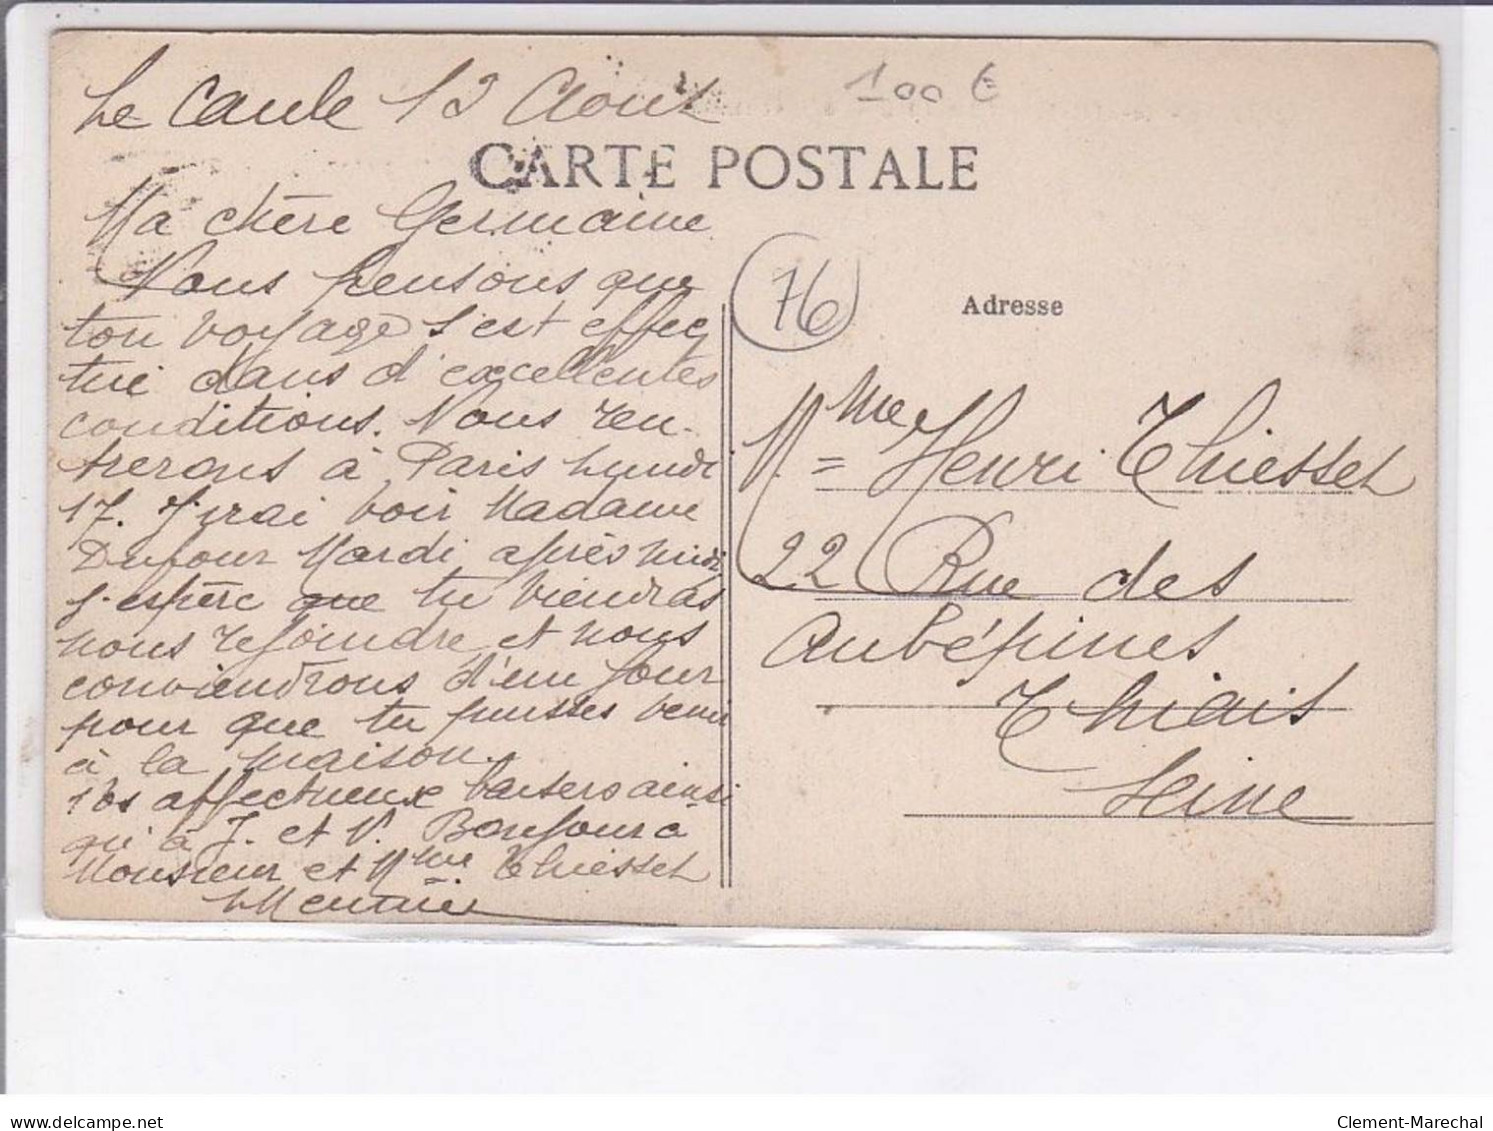 Le Caule 12 Août
100 €
CARTE POSTALE
Ma chère Germaine
Nous pensons que
ton voyage s'est effec
tué dans d'excellentes
conditions. Nous ren-
trerons à Paris Lundi
17. J'irai voir Madame
Dufour Mardi après midi
j'espère que tu viendras
nous rejoindre et nous
conviendrons d'un jour
pour que tu puisses venir
à la maison.
Bs affectueux baisers ainsi
qu'à J. et V. Bonjour à
Monsieur et Mme Thiesset
76
Adresse
Mme Henri Thiesset
22 Rue des
Aubépines
Thiais
Seine
delcampe.net
Clement-Marechal